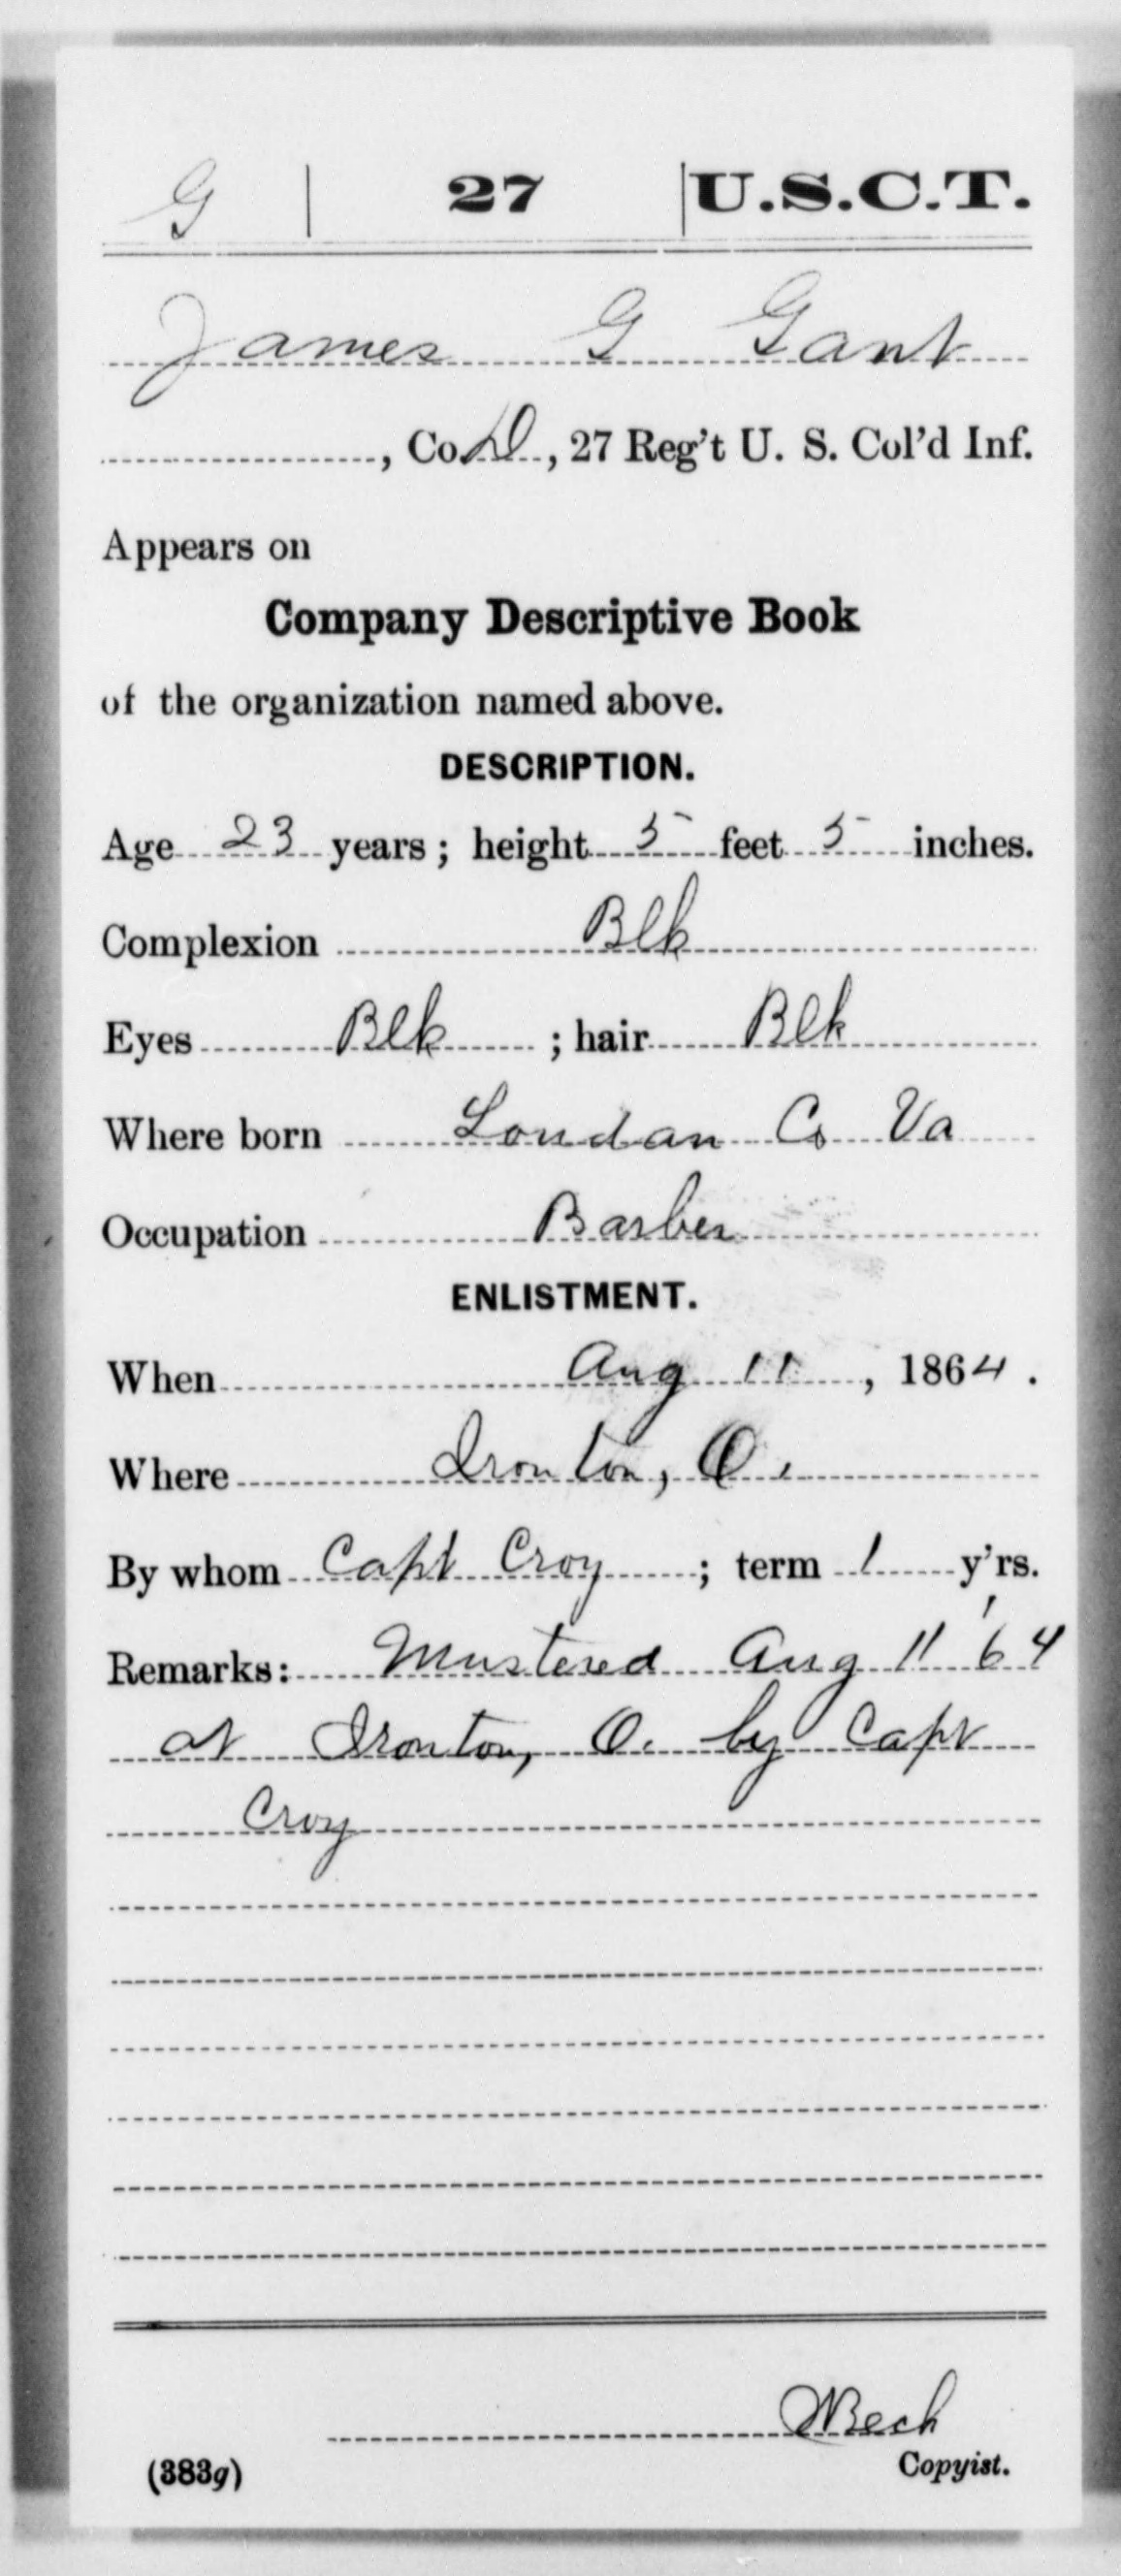 G | 27 | U.S.C.T.
James G Gant
, Co. D, 27 Reg't U. S. Col'd Inf.
Appears on
Company Descriptive Book
of the organization named above.
DESCRIPTION.
Age 23 years; height 5 feet 5 inches.
Complexion Blk
Eyes Blk ; hair Blk
Where born Loudan Co Va
Occupation Barber
ENLISTMENT.
When Aug 11, 1864.
Where Ironton, O.
By whom Capt Croy ; term 1 y'rs.
Remarks: Mustered Aug 11 '64
at Ironton, O. by Capt
Croy
Copyist.
(383g)